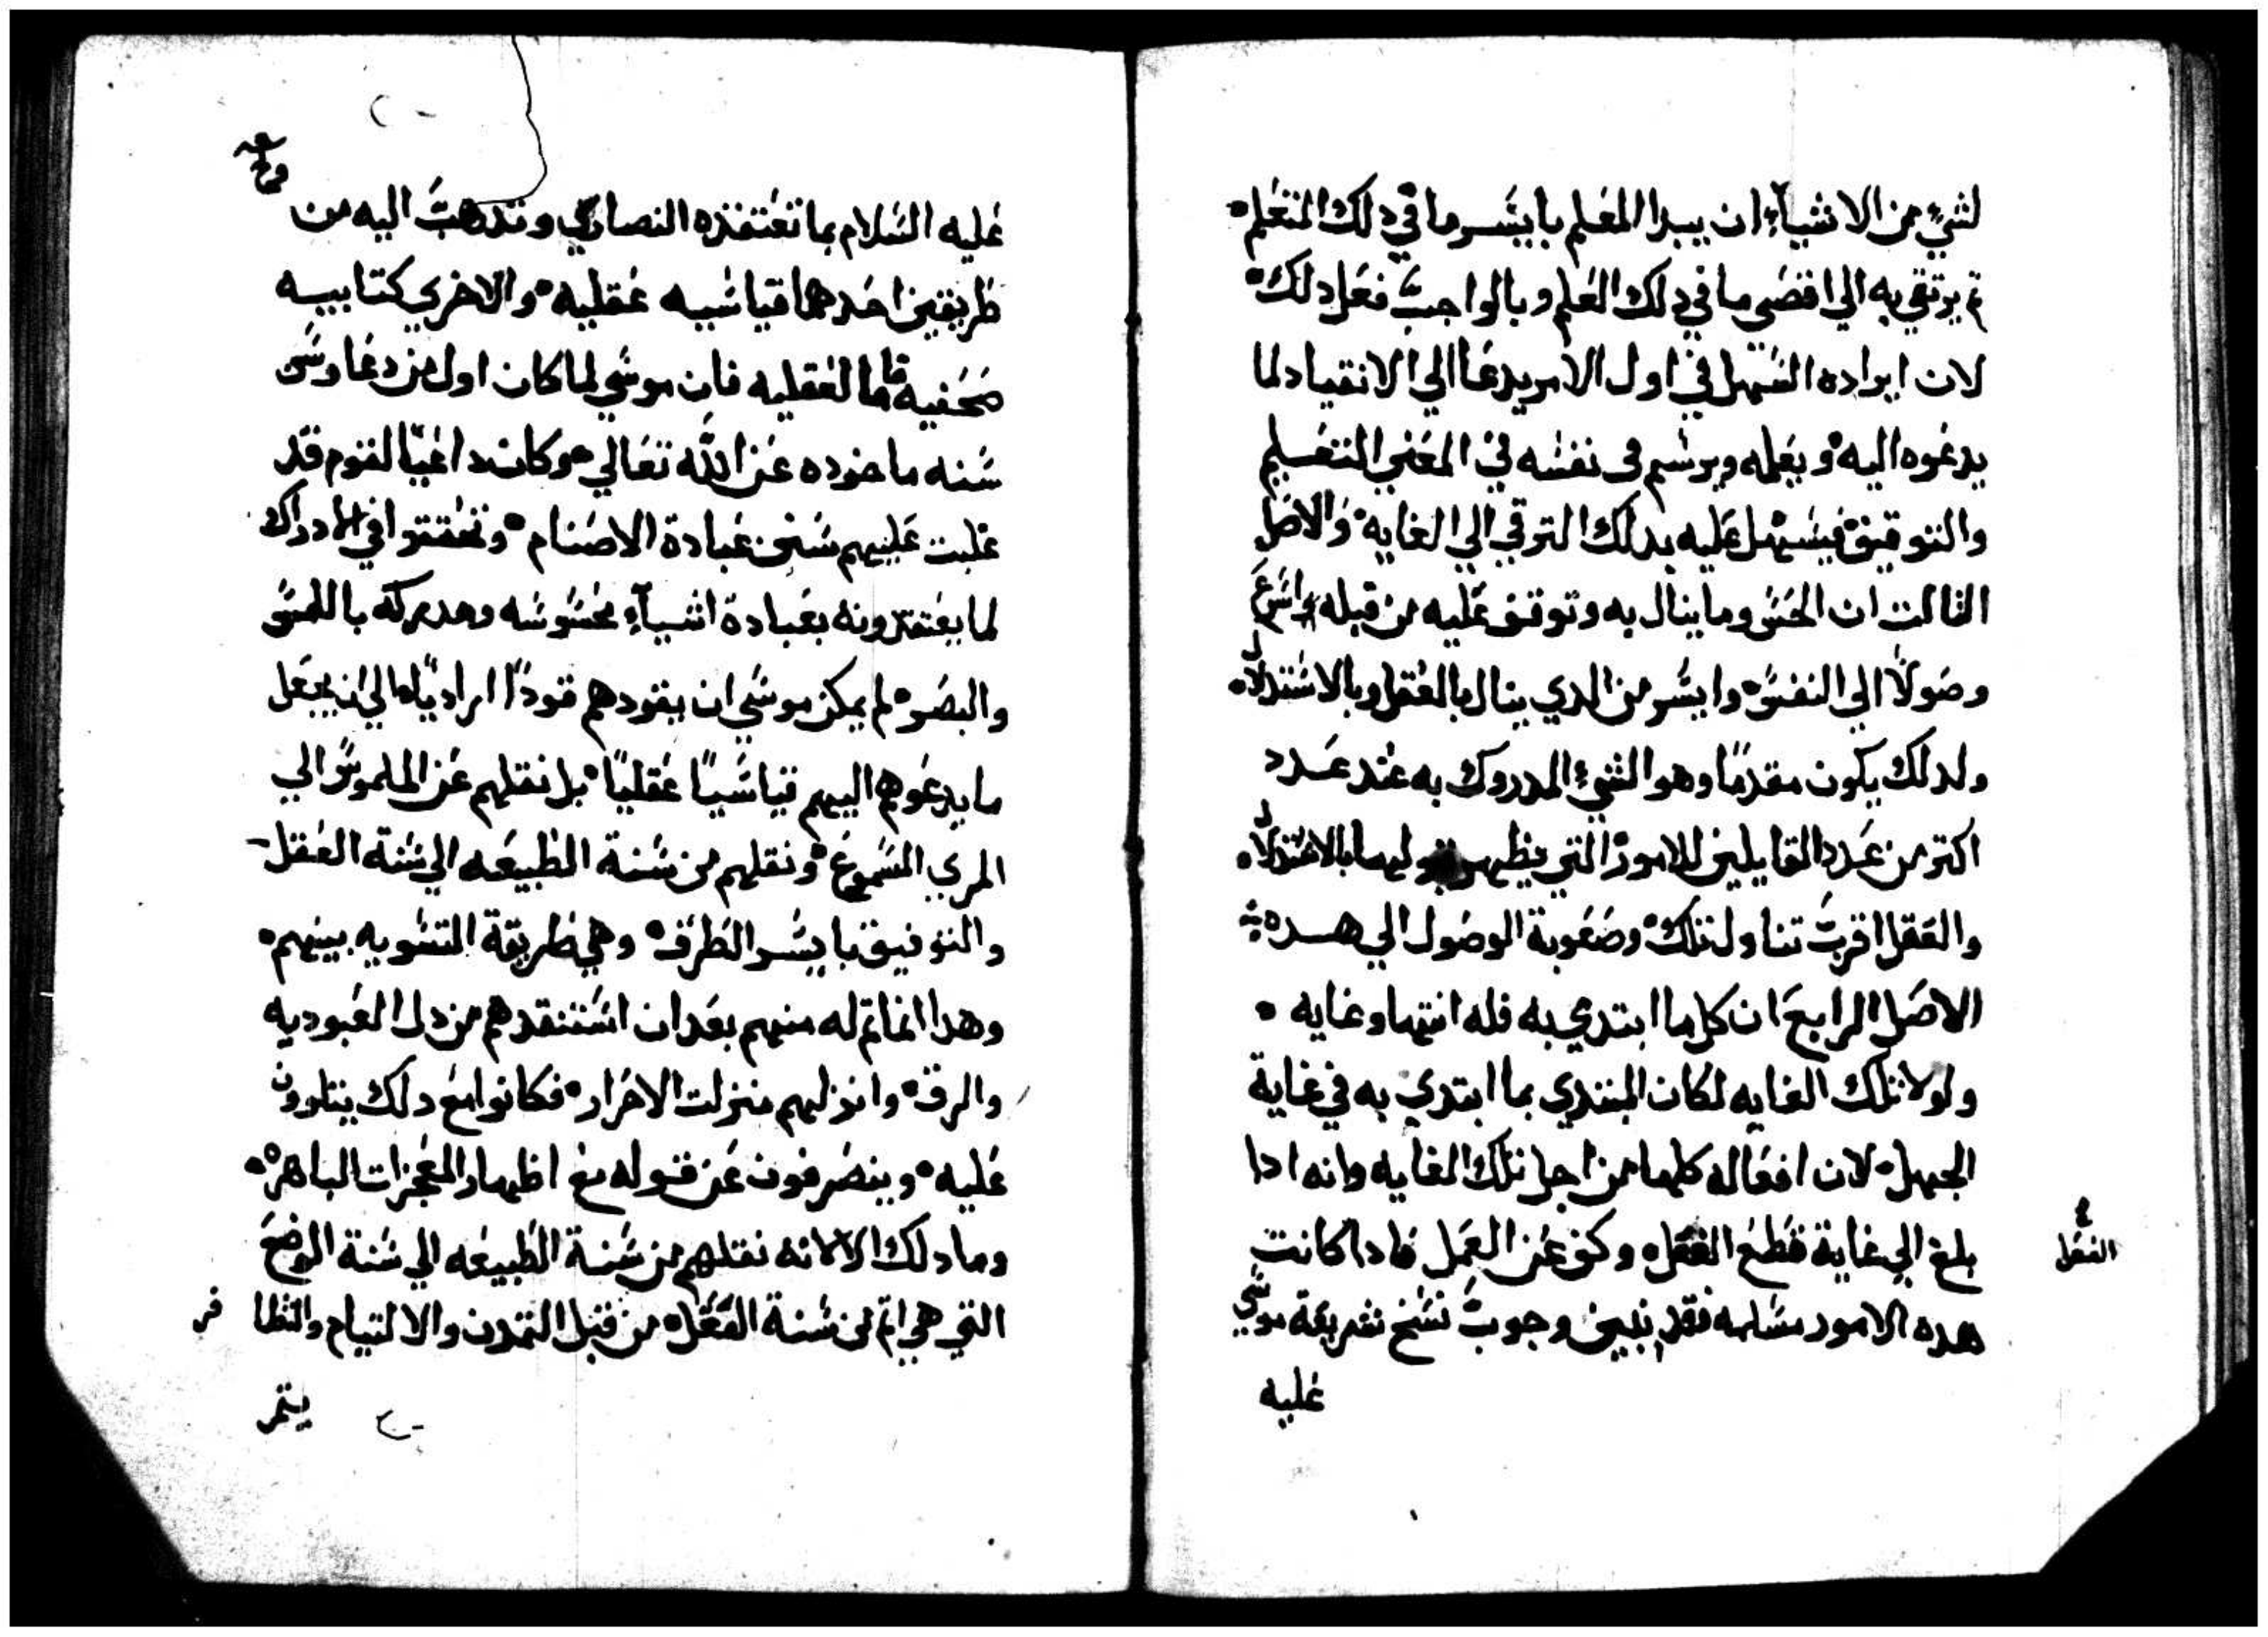 لشيء من الاشياء ان يبدا المعلم بايسر ما في دلك المتعلم
تم يرتقي به الي اقصي ما في دلك العلم وبالواجب فعل دلك
لان ايراده السهل في اول الامر يدعا الي الانقياد لما
يدعوه اليه ويعلمه ويرسم في نفسه في المعني التعسليم
والتوقيف فيسهل عليه بدلك الترقي الي الغايه والاصل
التالت ان الحس وما ينال به وتوقف عليه من قبله اسرع
وصولا الي النفس وايسر من الدي ينال بالعقل وبالاستدلال
ولدلك يكون مقدما وهو الشيء المدروك به عند عدد
اكتر من عدد القايلين للامور التي يظهر قبولها بالاستدلال
والعقل اقرب تناول تلك وصعوبة الوصول الي هده
الاصل الرابع ان كل ما ابتدي به فله انتها وغايه
ولولا تلك الغايه لكان المبتدي بما ابتدي به في غاية
الجهل لان افعاله كلها من اجل تلك الغايه وانه ادا
بلغ الي غاية قطع الفعل وكف عن العمل فادا كانت
الفعل
هده الامور مسلمه فقد تبين وجوب نسخ شريعة موسي
عليه
عليه السلام بما تعتقده النصاري وتدهب اليه من
طريقين احدهما قياسيه عقليه والاخري كتابيه
صحفيه فاما العقليه فان موسي لما كان اول من دعا وسن
سنه ماخوده عن الله تعالي وكان داعيا لقوم قد
غلبت عليهم سنن عبادة الاصنام وتحققوا في الادراك
لما يعتقدونه بعبادة اشياء محسوسه ومدركه باللمس
والبصر لم يمكن موسي ان يقودهم قودا اراديا الي ان يجعل
ما يدعوهم اليهم قياسيا عقليا بل نقلهم عن الملموس الي
المري المسموع ونقلهم من سنة الطبيعه الي سنة العقل
والتوفيق بايسر الطرق وهي طريقة التسويه بينهم
وهدا انما تم له منهم بعد ان استنقدهم من دل العبوديه
والرق وانزلهم منزلت الاحرار فكانوا مع دلك يتلوون
عليه وينصرفون عن قبوله مع اظهار المعجزات الباهره
وما دلك الا لانه نقلهم من سنة الطبيعه الي سنة الوضع
التي هي اتم من سنة العقل من قبل التمدن والالتيام والنظا
يتم